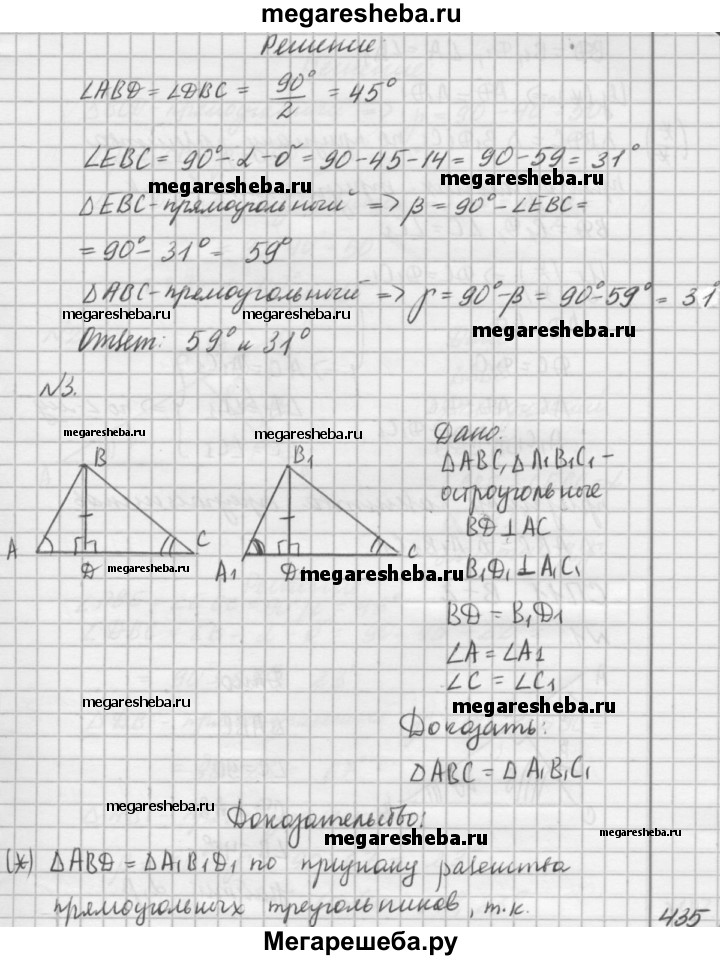 megaresheba.ru
Решение
∠ABD = ∠DBC = 90°/2 = 45°
∠EBC = 90° - α - δ = 90 - 45 - 14 = 90 - 59 = 31°
megaresheba.ru megaresheba.ru
ΔEBC - прямоугольный => β = 90° - ∠EBC =
= 90° - 31° = 59°
ΔABC - прямоугольный => γ = 90° - β = 90° - 59° = 31°
megaresheba.ru megaresheba.ru megaresheba.ru
Ответ: 59° и 31°
№3.
megaresheba.ru megaresheba.ru
Дано:
B B1
ΔABC, ΔA1B1C1 -
остроугольные
BD ⊥ AC
A D C A1 D1 C
megaresheba.ru megaresheba.ru
B1D1 ⊥ A1C1
BD = B1D1
∠A = ∠A1
∠C = ∠C1
megaresheba.ru megaresheba.ru
Доказать:
ΔABC = ΔA1B1C1
megaresheba.ru
Доказательство:
megaresheba.ru megaresheba.ru
(*) ΔABD = ΔA1B1D1 по признаку равенства
прямоугольных треугольников, т.к.
435
Мегарешеба.ру